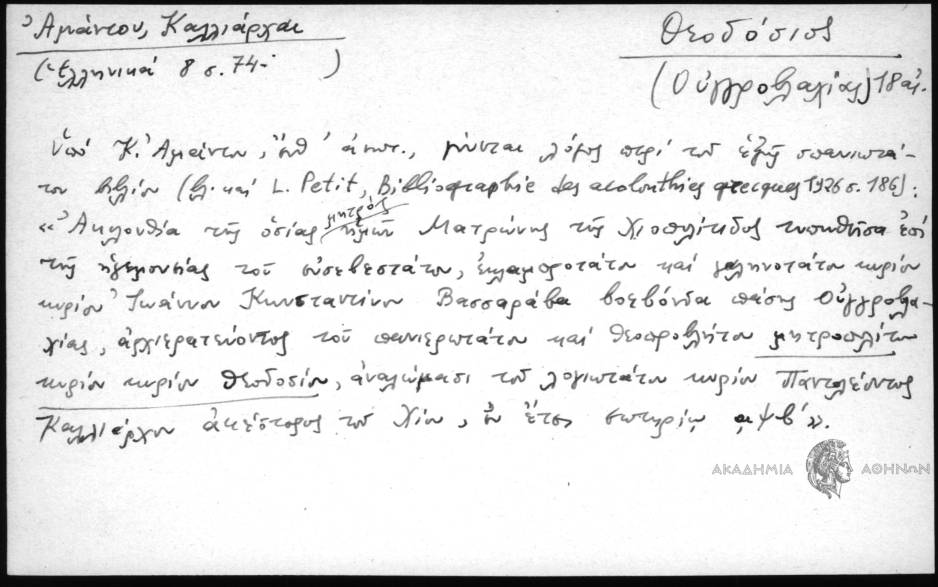 Ἀμάντου, Καλλιάρχαι
(Ἑλληνικά 8 σ. 74- )
Θεοδόσιος
(Οὑγγροβλαχίας) 18 αἰ.
Ὑπό Κ. Ἀμάντου, ἔνθ' ἀνωτ., γίνεται λόγος περί τοῦ ἑξῆς σπανιωτά-
του βιβλίου (βλ. καί L. Petit, Bibliographie des acolouthies grecques 1926 σ. 186):
«Ἀκολουθία τῆς ὁσίας μητρός ἡμῶν Ματρώνης τῆς Χιοπολίτιδος τυπωθεῖσα ἐπί
τῆς ἡγεμονείας τοῦ εὐσεβεστάτου, ἐκλαμπροτάτου καί γαληνοτάτου κυρίου
κυρίου Ἰωάννου Κωνσταντίνου Βασσαράβα βοεβόνδα πάσης Οὑγγροβλα-
χίας, ἀρχιερατεύοντος τοῦ πανιερωτάτου καί θεοπροβλήτου μητροπολίτου
κυρίου κυρίου Θεοδοσίου, ἀναλώμασι τοῦ λογιωτάτου κυρίου Παντολέοντος
Καλλιάρχου ἀκέστορος τοῦ Χίου, ἐν ἔτει σωτηρίῳ αψβ΄».
ΑΚΑΔΗΜΙΑ ΑΘΗΝΩΝ